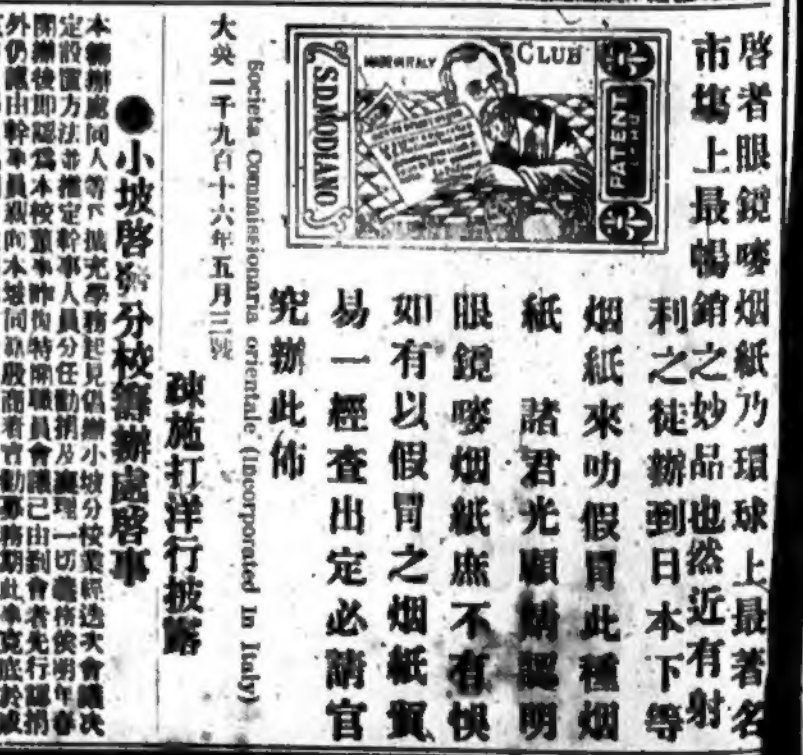 啓者眼鏡嘜烟紙乃環球上最著名
市塲上最暢銷之妙品也然近有射
利之徒辦到日本下等
烟紙來叻假冒此種烟
紙 諸君光顧請認明
眼鏡嘜烟紙庶不有悞
如有以假冒之烟紙貿
易一經查出定必請官
究辦此佈
MADE IN ITALY
CLUB
S.D.MODIANO
PATENT
Societa Commissionaria orientale (Incorporated In Italy)
大英一千九百十六年五月三號
疎施打洋行披露
小坡啓發分校籌辦處啓事
本籌辦處同人等因擴充學務起見倡辦小坡分校業經迭次會議决
定設置方法並推定幹事人員分任勸捐及處理一切義務俟明年春
開辦後即認爲本校董事昨復特開職員會議已由到會者先行認捐
外仍